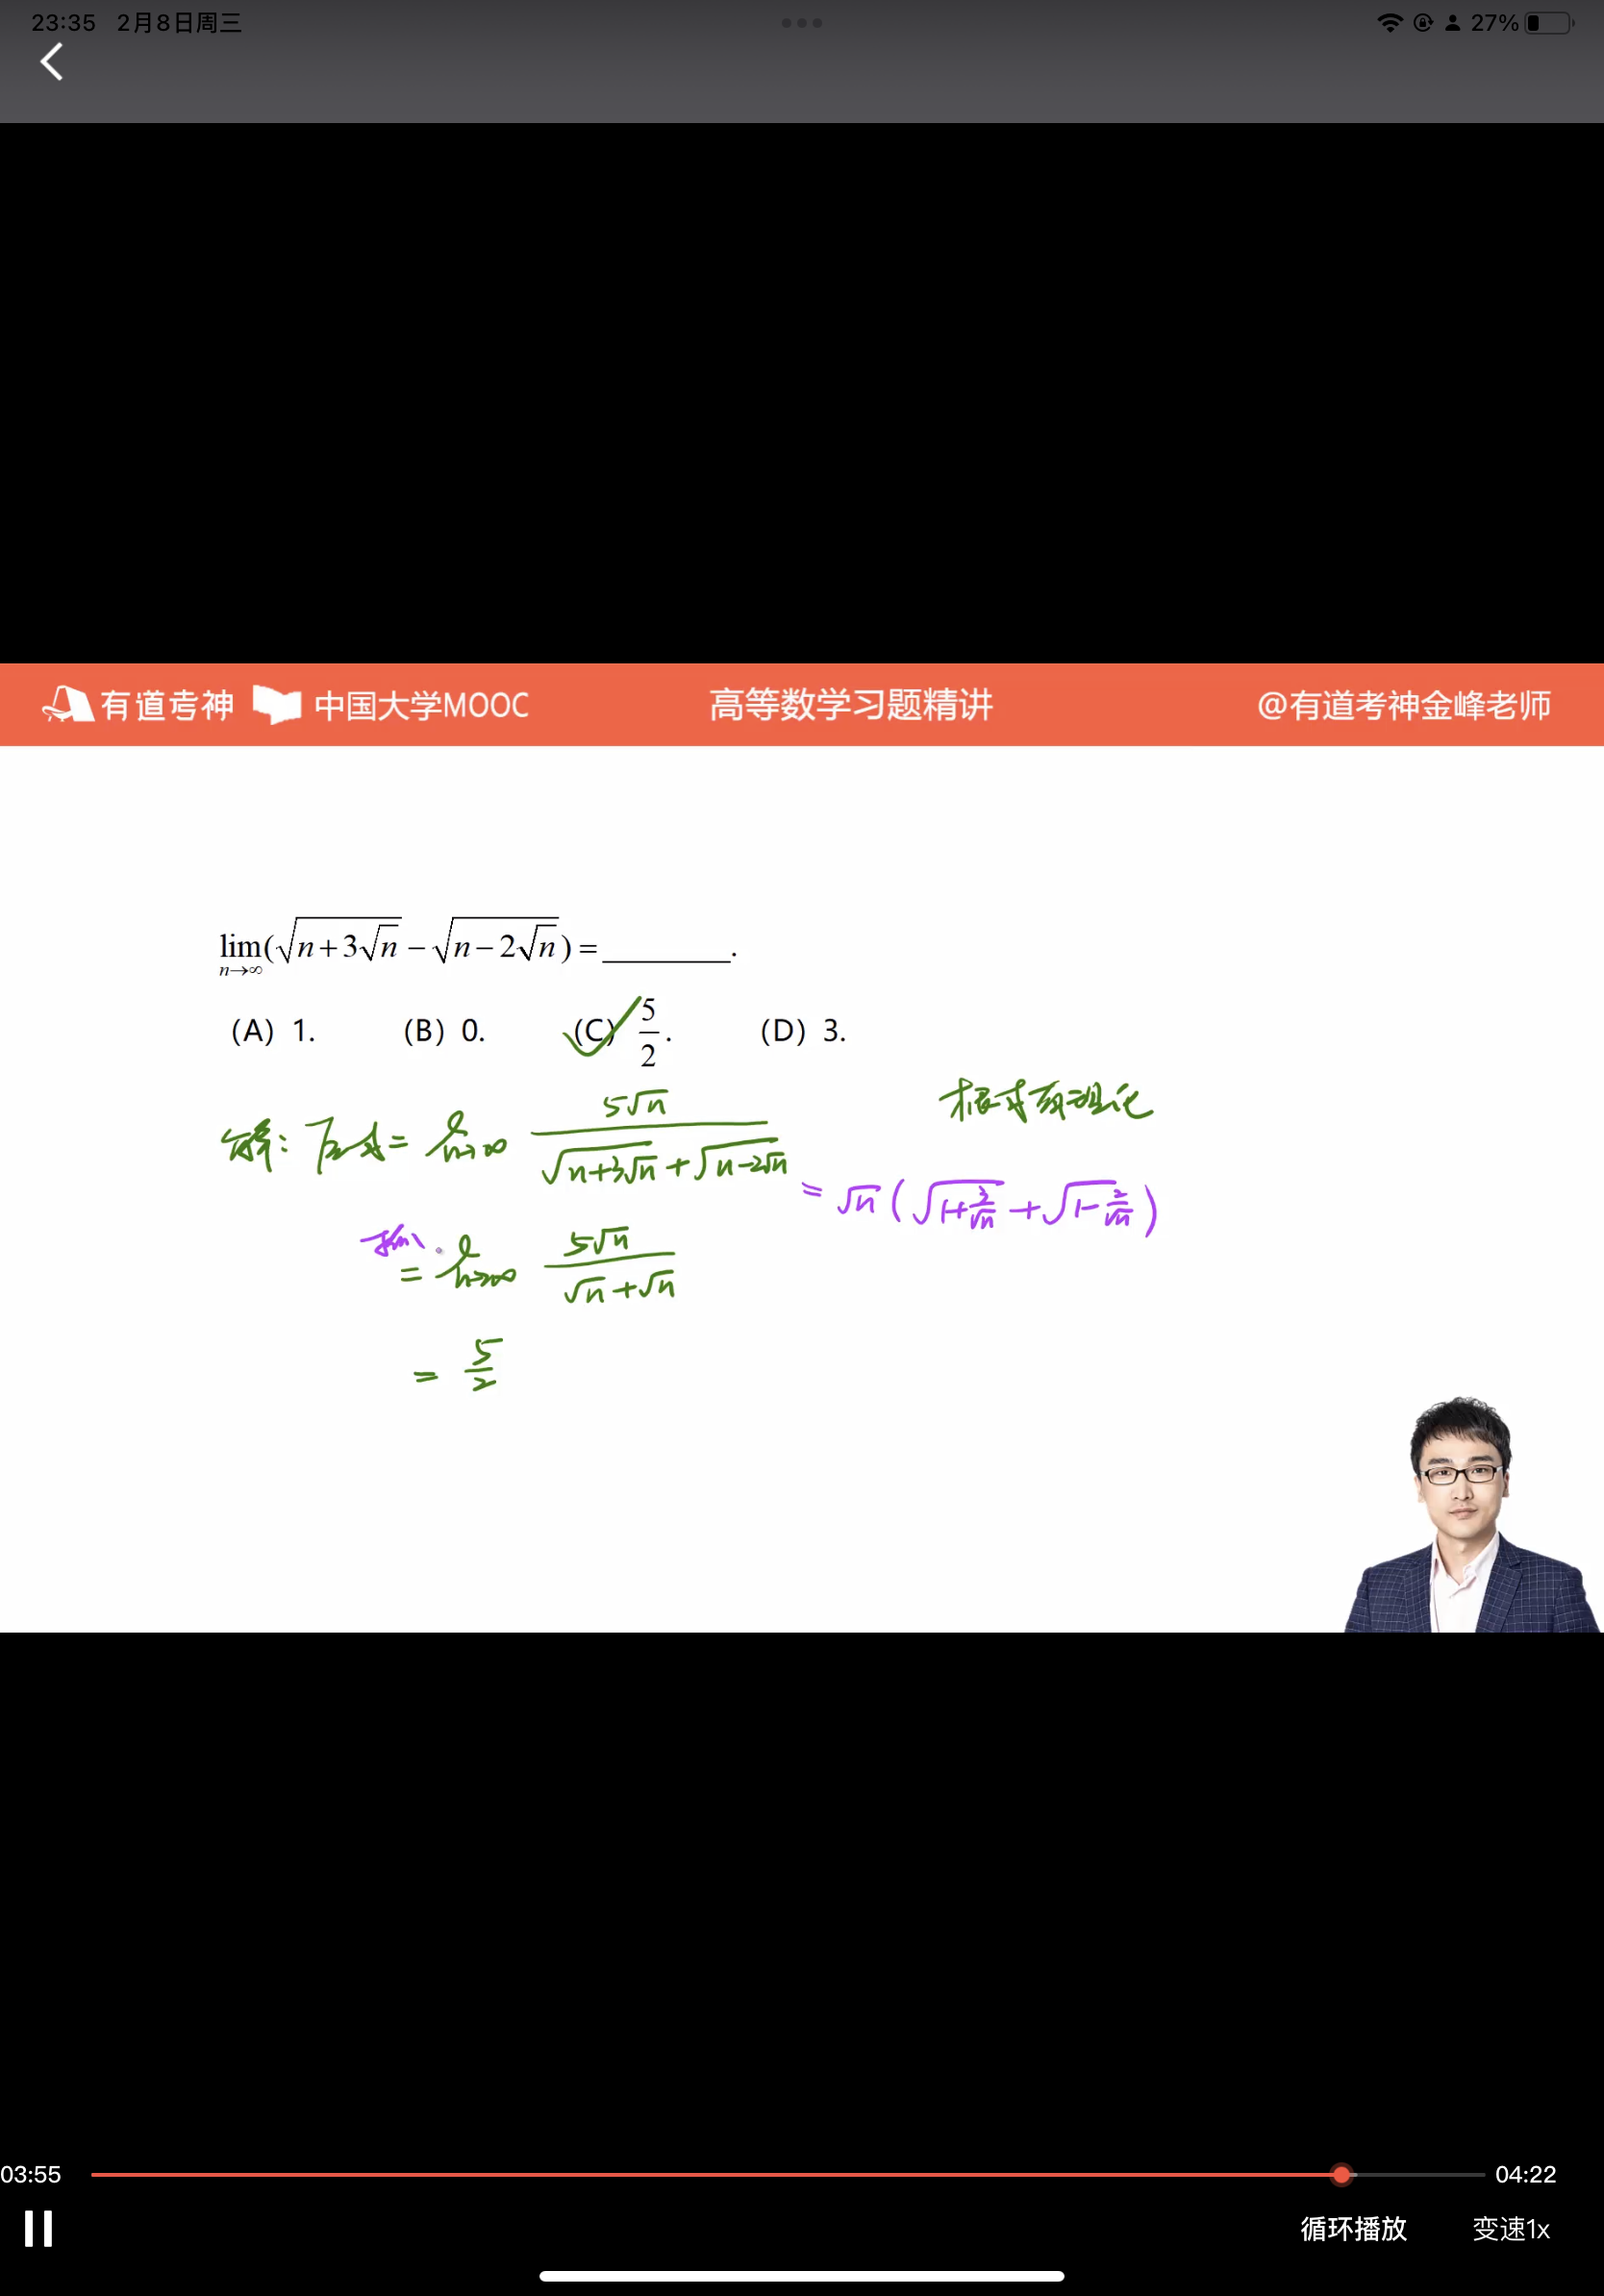 23:35 2月8日周三 27%
有道考神 中国大学MOOC 高等数学习题精讲 @有道考神金峰老师
lim(√(n+3√n) − √(n−2√n)) = ________.
n→∞
（A）1. （B）0. （C）5/2. （D）3.
根式有理化
解: 原式 = lim n→∞ 5√n / (√(n+3√n) + √(n−2√n)) = √n(√(1+3/√n) + √(1−2/√n))
= lim n→∞ 5√n / (√n+√n)
= 5/2
03:55 04:22
循环播放 变速1x